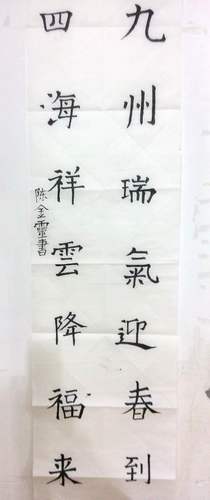 九州瑞氣迎春到
四海祥雲降福来
陈全靈書